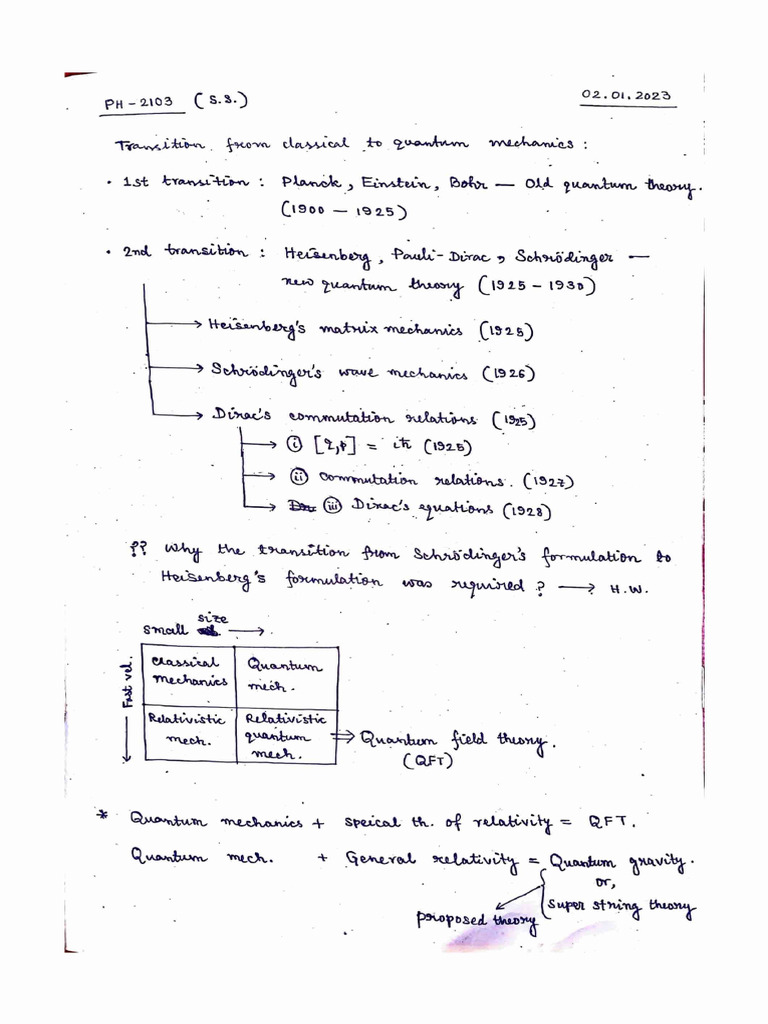 PH-2103 (S.S.) 02.01.2023
Transition from classical to quantum mechanics :
• 1st transition : Planck, Einstein, Bohr — Old quantum theory.
(1900 — 1925)
• 2nd transition : Heisenberg, Pauli-Dirac, Schrödinger —
new quantum theory (1925 - 1930)
→ Heisenberg's matrix mechanics (1925)
→ Schrödinger's wave mechanics (1926)
→ Dirac's commutation relations (1925)
→ (i) [q,p] = iħ (1925)
→ (ii) commutation relations. (1927)
→ (iii) Dirac's equations (1928)
?? Why the transition from Schrödinger's formulation to
Heisenberg's formulation was required? → H.W.
small size →
Fast vel.
Classical mechanics
Quantum mech.
Relativistic mech.
Relativistic quantum mech.
⇒ Quantum field theory.
(QFT)
* Quantum mechanics + speical th. of relativity = QFT.
Quantum mech. + General relativity = Quantum gravity.
or,
super string theory
proposed theory